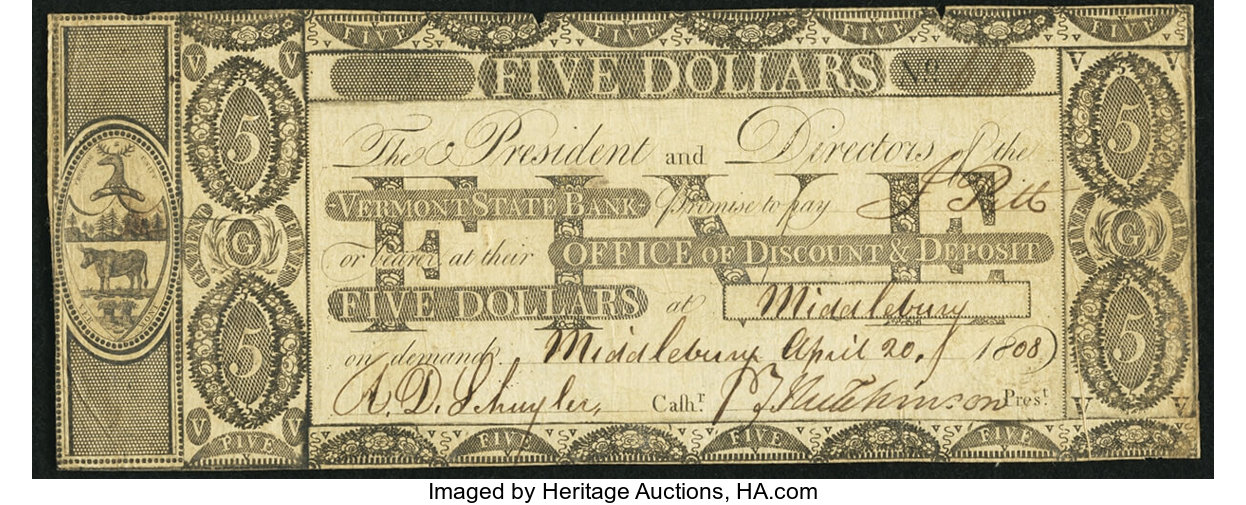 FIVE FIVE FIVE FIVE
FIVE DOLLARS No
The President and Directors of the
VERMONT STATE BANK Promise to pay J Pitt
or bearer at their OFFICE OF DISCOUNT & DEPOSIT
FIVE
FIVE DOLLARS at Middlebury
on demand. Middlebury April 20. 1808
Cash.r Hutchinson Pres.t
FIVE FIVE FIVE FIVE
V V
5 5
G G
5 5
V V
FIVE
Imaged by Heritage Auctions, HA.com